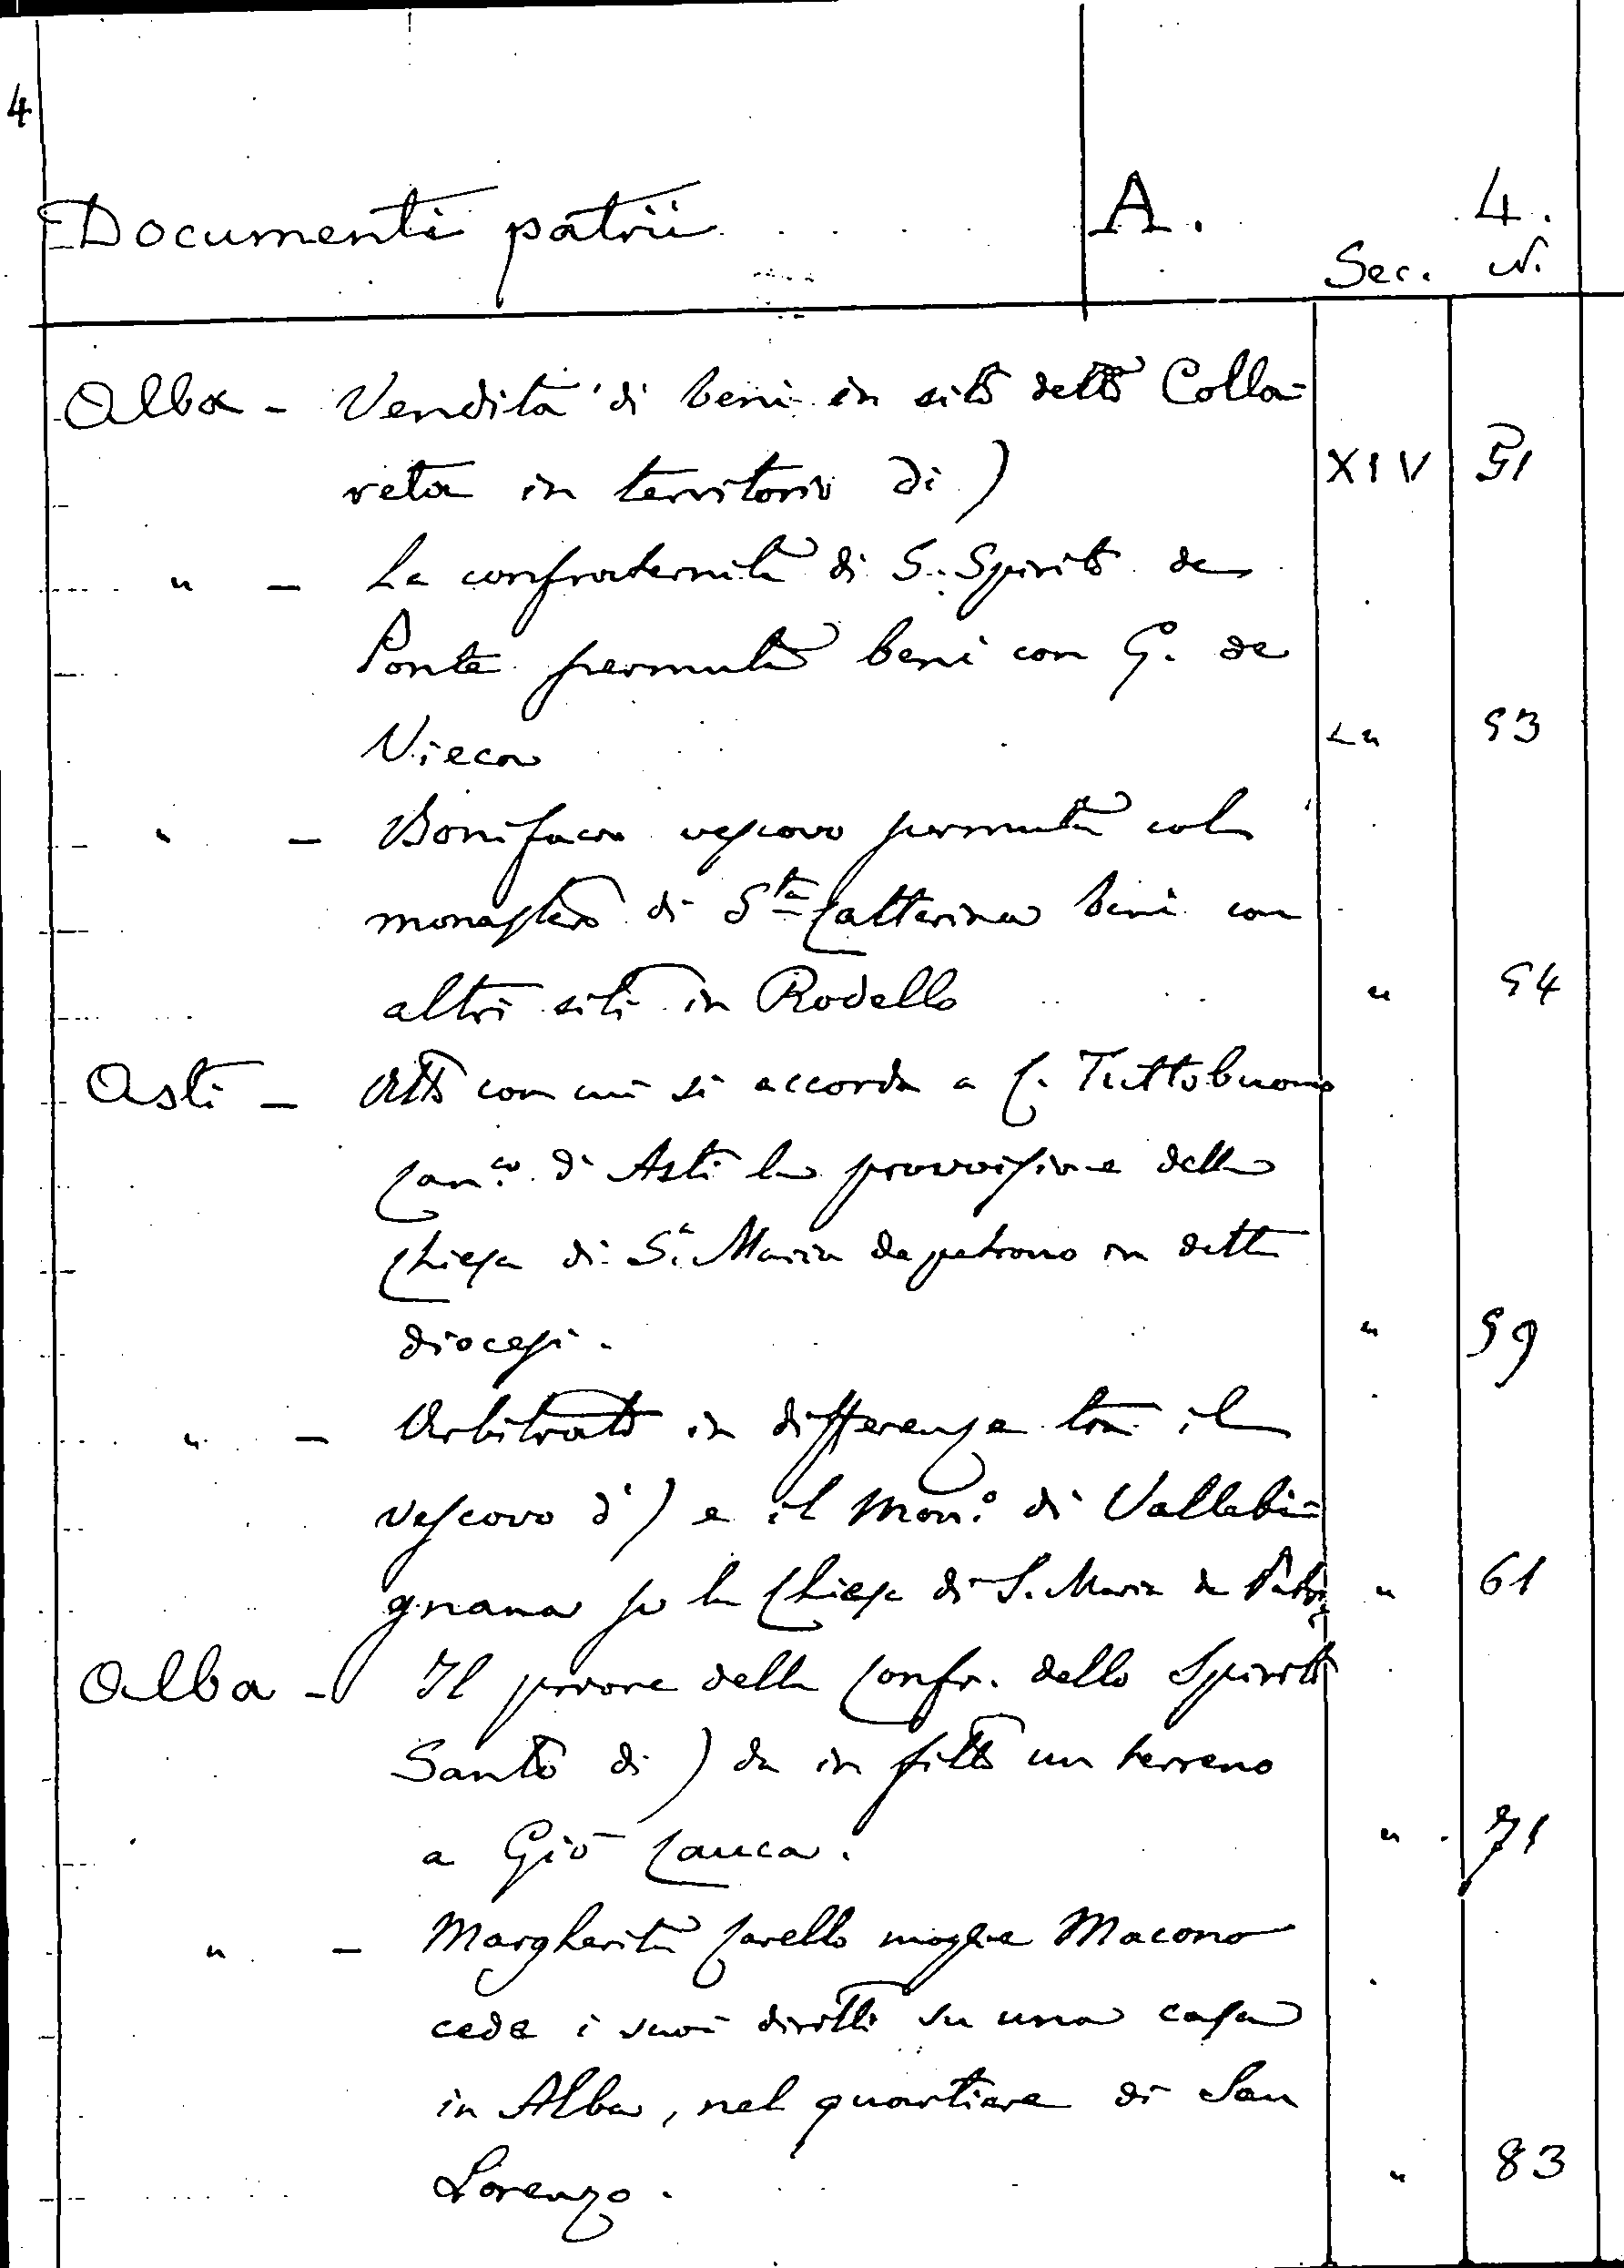 4
Documenti patrii A. 4.
Sec. N.
Alba - Vendita di beni in sito detto Colla=
reta in territorio di) XIV 51
" - La confraternita di S. Spirito de
Ponte permuta beni con G. de
Vieca " 53
" - Bonifacio vescovo permuta col
monastero di Sta Catterina beni con
altri siti in Rodello " 54
Asti - Atto con cui si accorda a C. Tuttobuono
Can.co d'Asti la provvisione della
Chiesa di S.a Maria de petrono in detta
diocesi. " 59
" - Arbitrato in differenza tra il
Vescovo d') e il Mon.o di Vallebi=
gnana per la Chiesa di S. Maria de " 61
Alba - Il priore della Confr. dello Spirito
Santo di) da in fitto un terreno
a Gio Cauca. " 71
" - Margherita Carello moglie Macono
cede i suoi diritti su una casa
in Alba, nel quartiere di San
Lorenzo. " 83